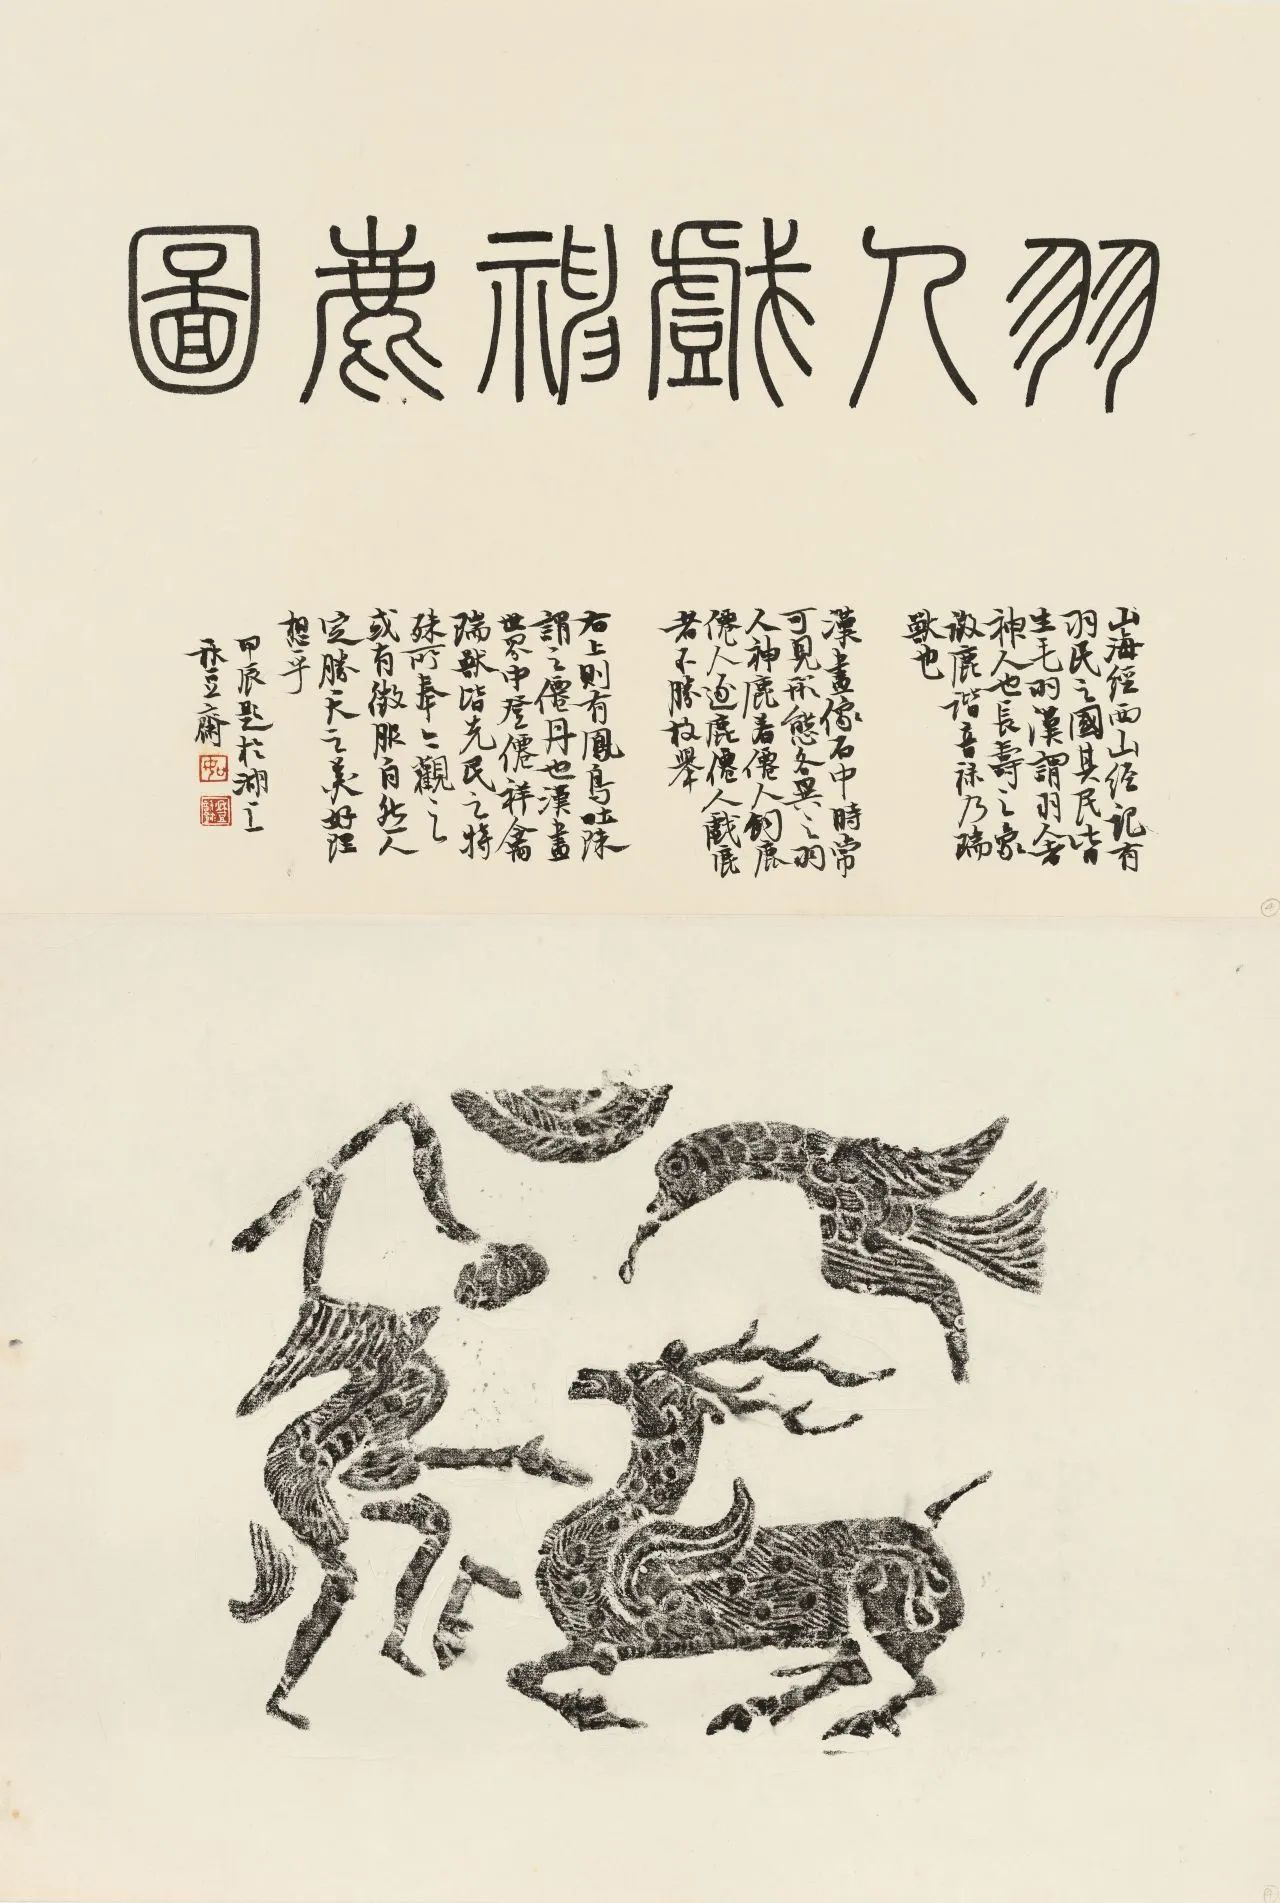 羽人戲神鹿圖
山海經西山經記有
羽民之國其民皆
生毛羽漢謂羽人者
神人也長壽之象
徵鹿諧音祿乃瑞
獸也
漢畫像石中時常
可見形態各異之羽
人神鹿者僊人飼鹿
僊人逐鹿僊人戲鹿
者不勝枚舉
右上則有鳳鳥吐珠
謂之僊丹也漢畫
世界中登僊祥禽
瑞獸皆先民之特
殊所奉之觀之
或有徵服自然人
定勝天之美好理
想乎
甲辰題於湖上
豆齋